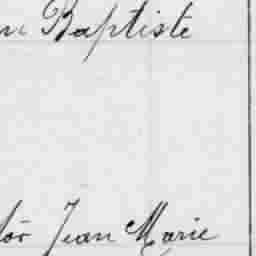 Baptiste
Jean Marie